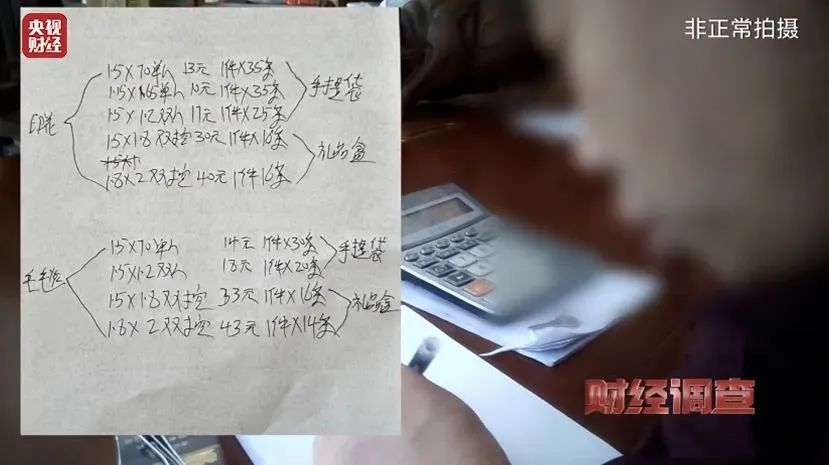 央视财经
非正常拍摄
印花
15×70单人 13元 1件×35条
1.15×1.65单人 10元 1件×35条
15×1.2双人 17元 1件×25条
手提袋
15×1.8双控 30元 1件×18条
1.8×2双控 40元 1件16条
礼品盒
15×70单人 14元 1件×30条
15×1.2双人 18元 1件×20条
手提袋
15×1.8双控 33元 1件×16条
1.8×2双控 43元 1件×14条
礼品盒
财经调查